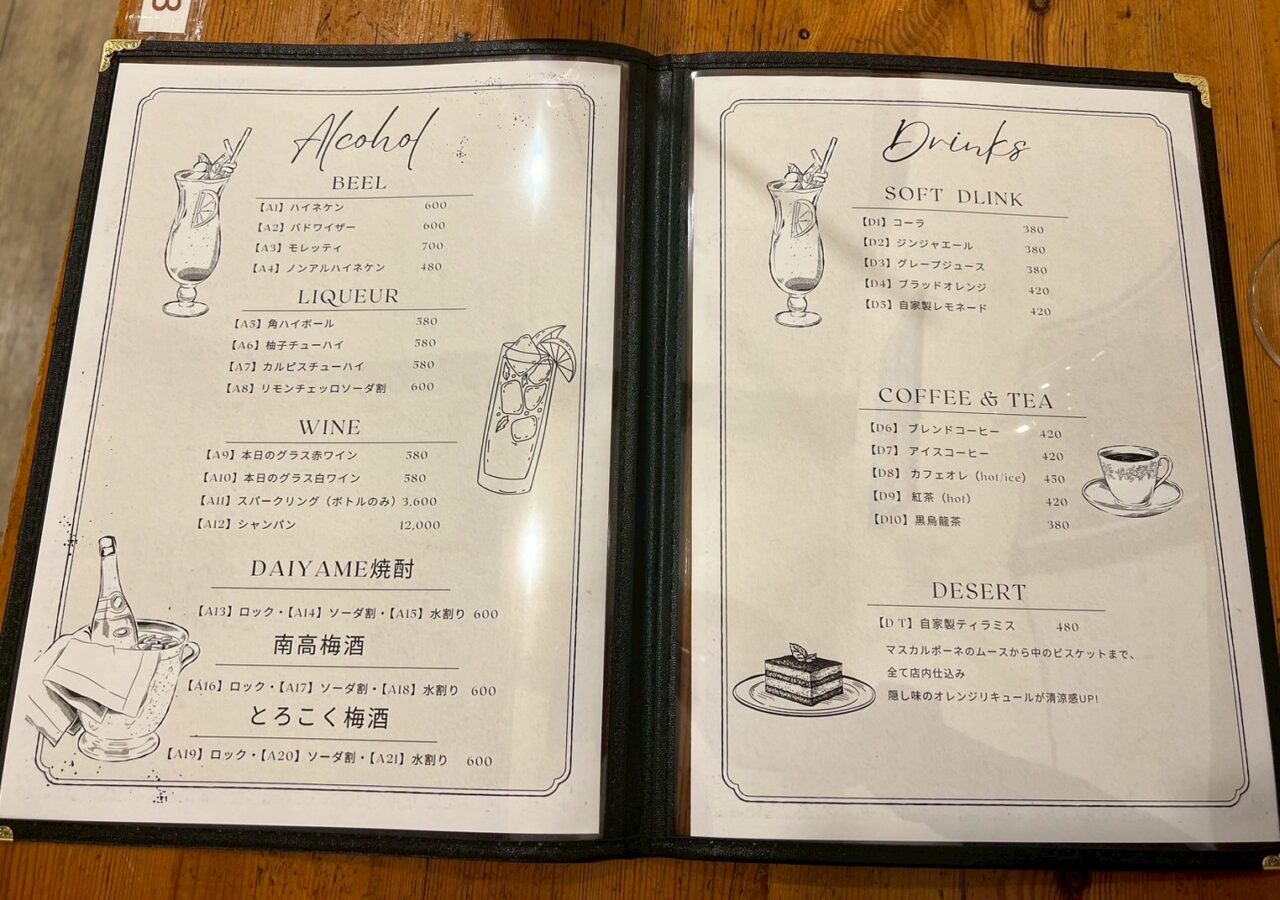 3
Alcohol
BEEL
【A1】ハイネケン 600
【A2】バドワイザー 600
【A3】モレッティ 700
【A4】ノンアルハイネケン 480
LIQUEUR
【A5】角ハイボール 580
【A6】柚子チューハイ 580
【A7】カルピスチューハイ 580
【A8】リモンチェッロソーダ割 600
WINE
【A9】本日のグラス赤ワイン 580
【A10】本日のグラス白ワイン 580
【A11】スパークリング（ボトルのみ）3,600
【A12】シャンパン 12,000
DAIYAME焼酎
【A13】ロック・【A14】ソーダ割・【A15】水割り 600
南高梅酒
【A16】ロック・【A17】ソーダ割・【A18】水割り 600
とろこく梅酒
【A19】ロック・【A20】ソーダ割・【A21】水割り 600
Drinks
SOFT DLINK
【D1】コーラ 380
【D2】ジンジャエール 380
【D3】グレープジュース 380
【D4】ブラッドオレンジ 420
【D5】自家製レモネード 420
COFFEE & TEA
【D6】ブレンドコーヒー 420
【D7】アイスコーヒー 420
【D8】カフェオレ（hot/ice） 450
【D9】紅茶（hot） 420
【D10】黒烏龍茶 380
DESERT
【D T】自家製ティラミス 480
マスカルポーネのムースから中のビスケットまで、
全て店内仕込み
隠し味のオレンジリキュールが清涼感UP!